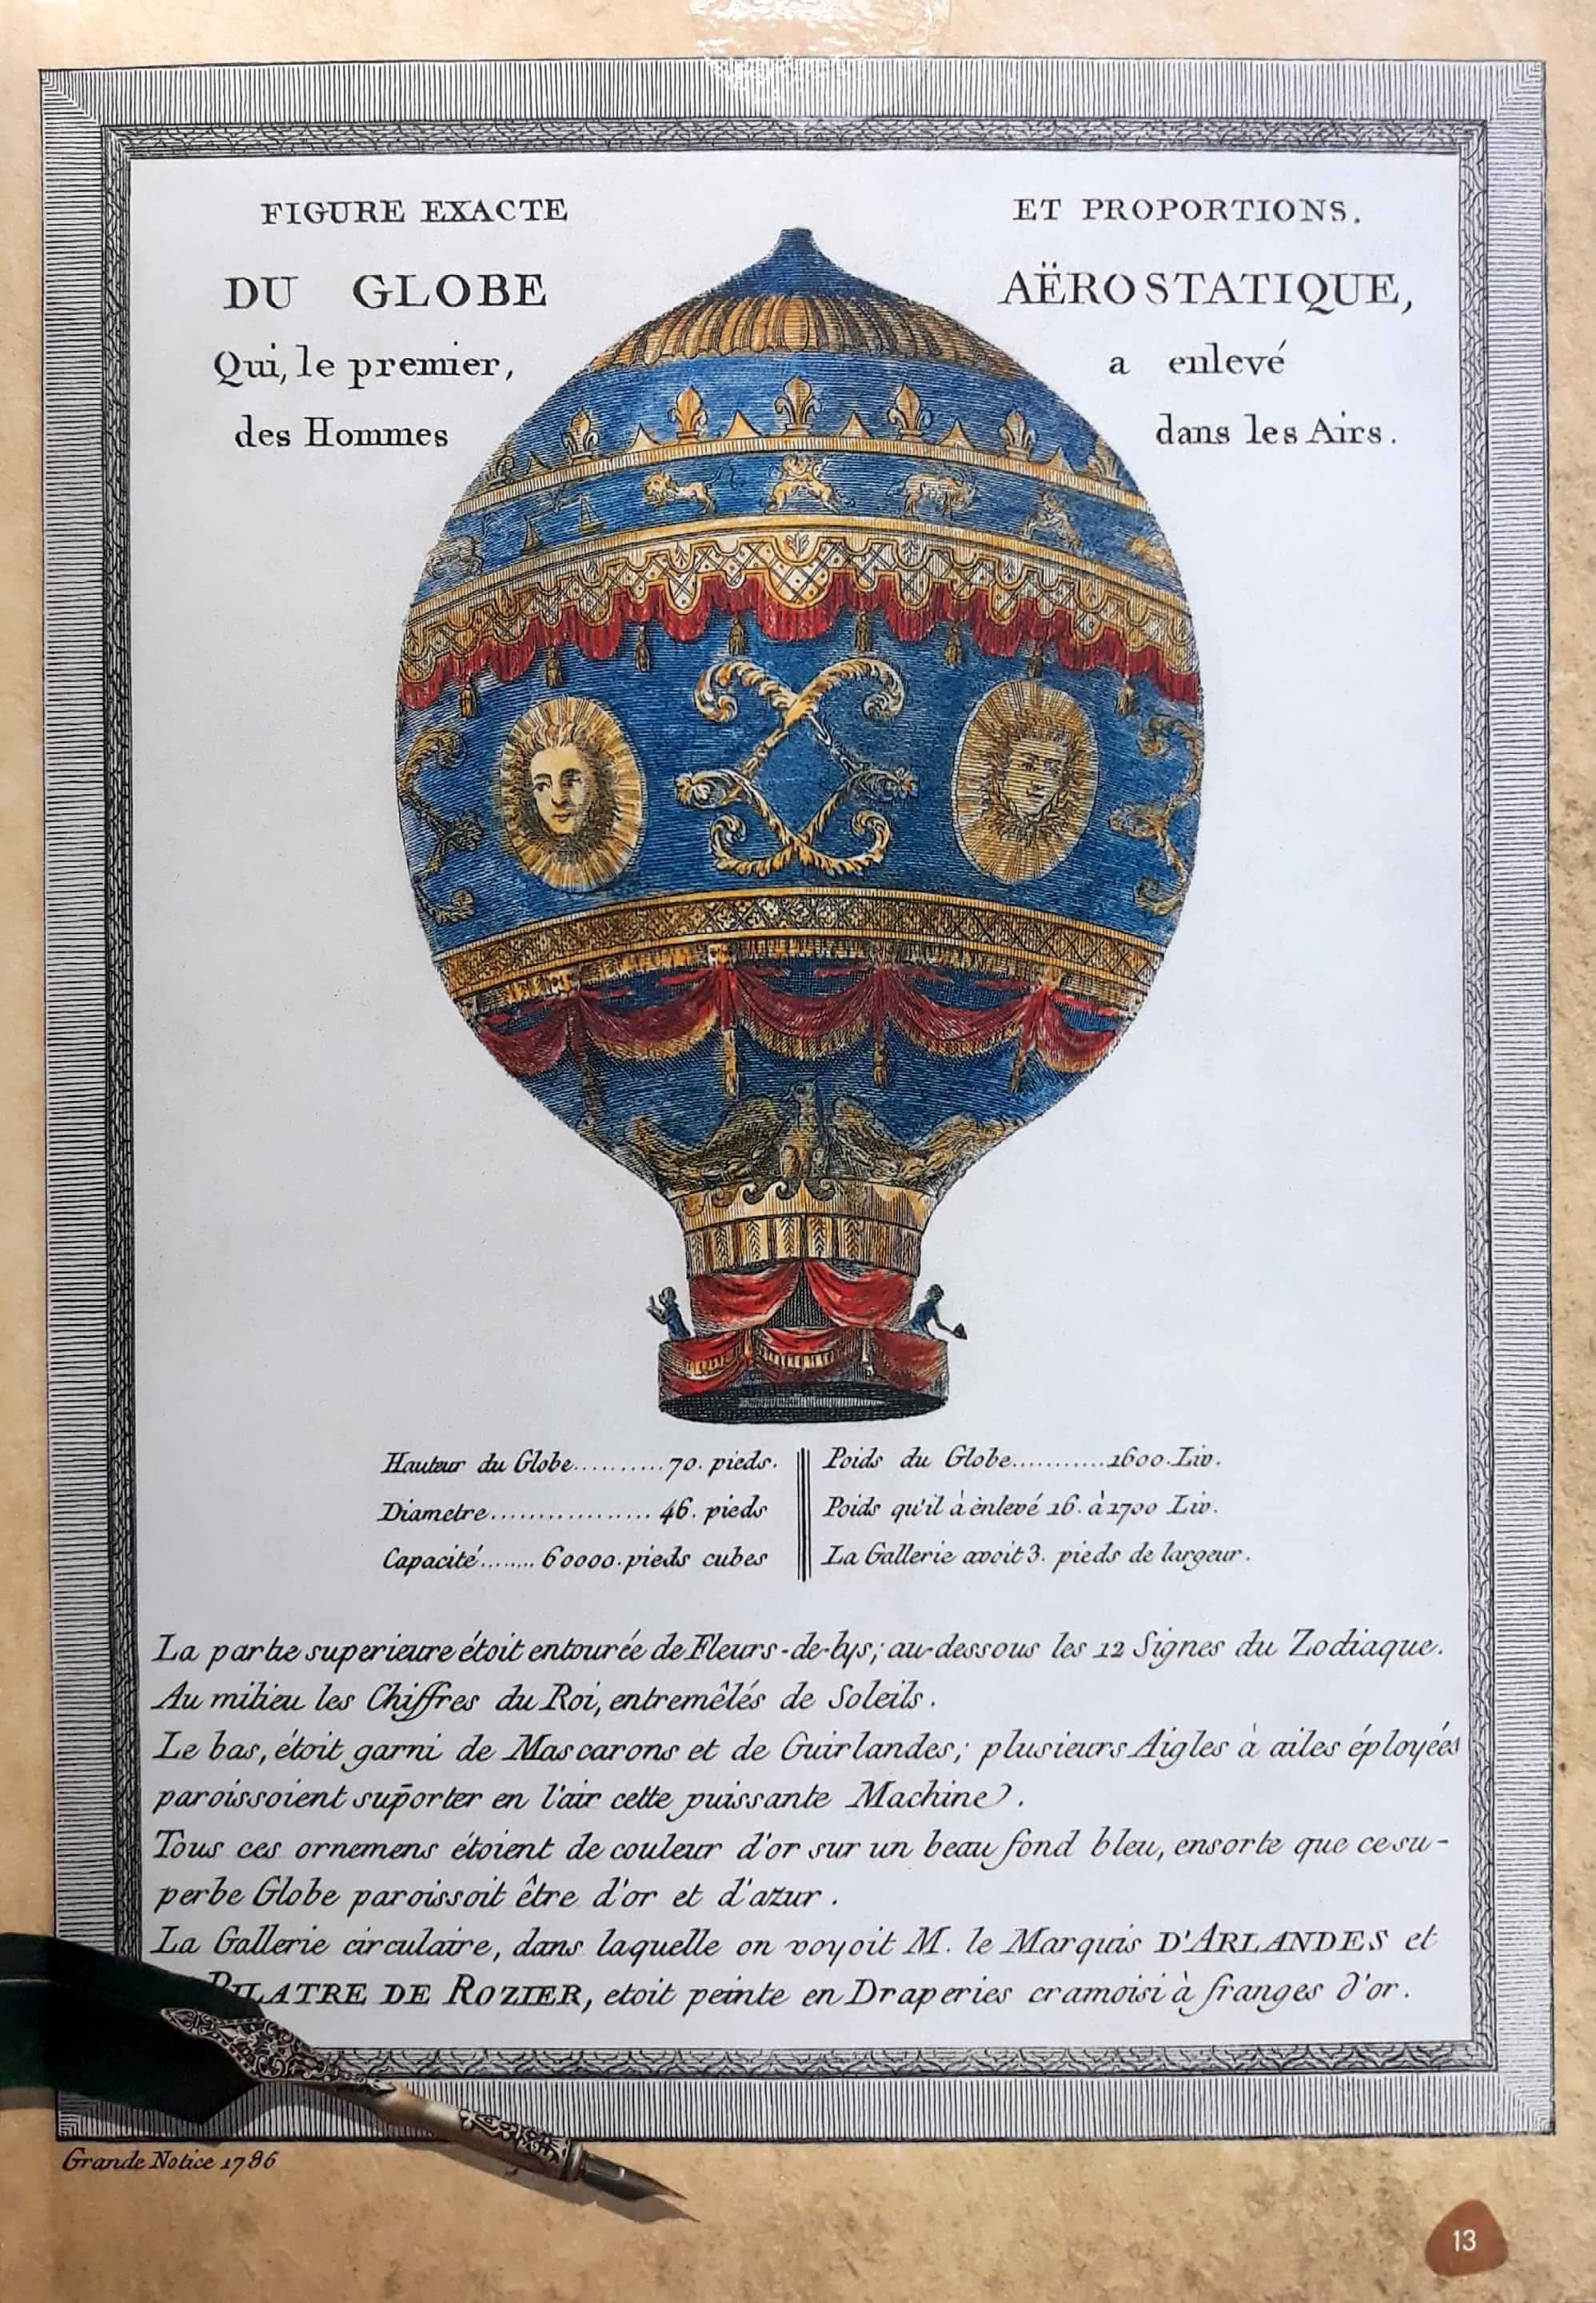 FIGURE EXACTE ET PROPORTIONS.
DU GLOBE AËROSTATIQUE,
Qui, le premier, a enlevé
des Hommes dans les Airs.
Hauteur du Globe..........70. pieds.
Diametre.................. 46. pieds
Capacité........ 60000. pieds cubes
Poids du Globe...........1600. Liv.
Poids qu'il à enlevé 16. à 1700 Liv.
La Gallerie avoit 3. pieds de largeur.
La partie superieure étoit entourée de Fleurs-de-lys; au-dessous les 12 Signes du Zodiaque.
Au milieu les Chiffres du Roi, entremêlés de Soleils.
Le bas, étoit garni de Mascarons et de Guirlandes; plusieurs Aigles à ailes éployées
paroissoient sup̄orter en l'air cette puissante Machine.
Tous ces ornemens étoient de couleur d'or sur un beau fond bleu, ensorte que ce su-
perbe Globe paroissoit être d'or et d'azur.
La Gallerie circulaire, dans laquelle on voyoit M. le Marquis D'ARLANDES et
PILATRE DE ROZIER, etoit peinte en Draperies cramoisi à franges d'or.
Grande Notice 1786
13